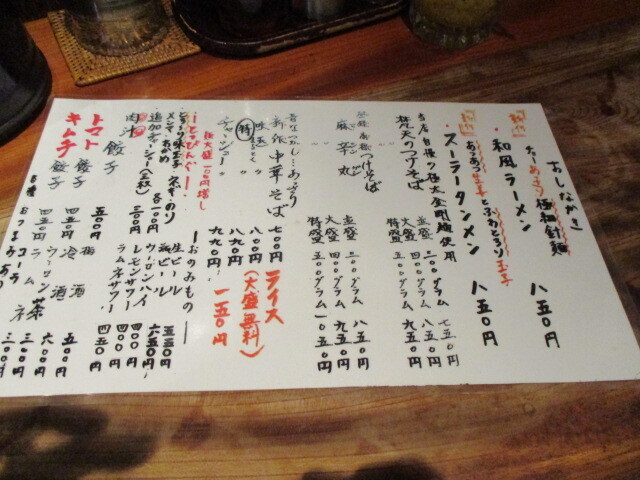 おしながき
和風ラーメン 八五〇円
極細針麺
スーラータンメン 八五〇円
当店自慢の極太金剛麺使用
梵天のつけそば
並盛 二〇〇グラム 七五〇円
大盛 三〇〇グラム 八五〇円
特盛 五〇〇グラム 九五〇円
つけそば
麻辛丸
並盛 二〇〇グラム 八五〇円
大盛 四〇〇グラム 九五〇円
特盛 五〇〇グラム 一〇五〇円
昔なつかし…あっさり
中華そば 七〇〇円
八〇〇円
特 八九〇円
チャーシュー 九九〇円
ライス
(大盛無料)
一五〇円
極大盛一〇〇円増し
―とっぴんぐ―
味玉子 ねぎ のり
メンマ わかめ 各一〇〇円
追加チャーシュー(三枚) 三〇〇円
肉汁餃子
トマト餃子 五〇〇円
キムチ餃子 四五〇円
―おのみもの―
生ビール 五五〇円
瓶ビール 六五〇円
ウーロンハイ 四〇〇円
レモンサワー 四〇〇円
ラムネサワー 四五〇円
梅酒 五〇〇円
冷酒 六〇〇円
ウーロン茶 三〇〇円
ラムネ
コーラ 三〇〇円